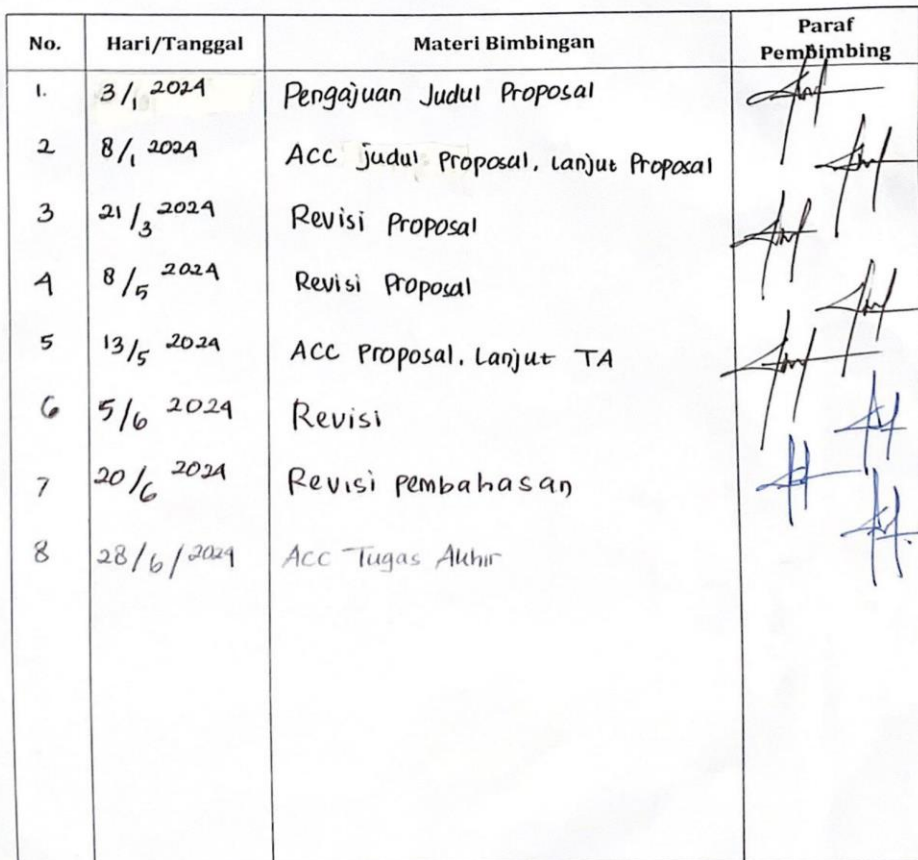 No. Hari/Tanggal Materi Bimbingan Paraf Pembimbing
1. 3/1 2024 Pengajuan Judul Proposal
2 8/1 2024 ACC judul proposal. Lanjut Proposal
3 21/3 2024 Revisi Proposal
4 8/5 2024 Revisi Proposal
5 13/5 2024 ACC Proposal. Lanjut TA
6 5/6 2024 Revisi
7 20/6 2024 Revisi pembahasan
8 28/6/2024 Acc Tugas Akhir